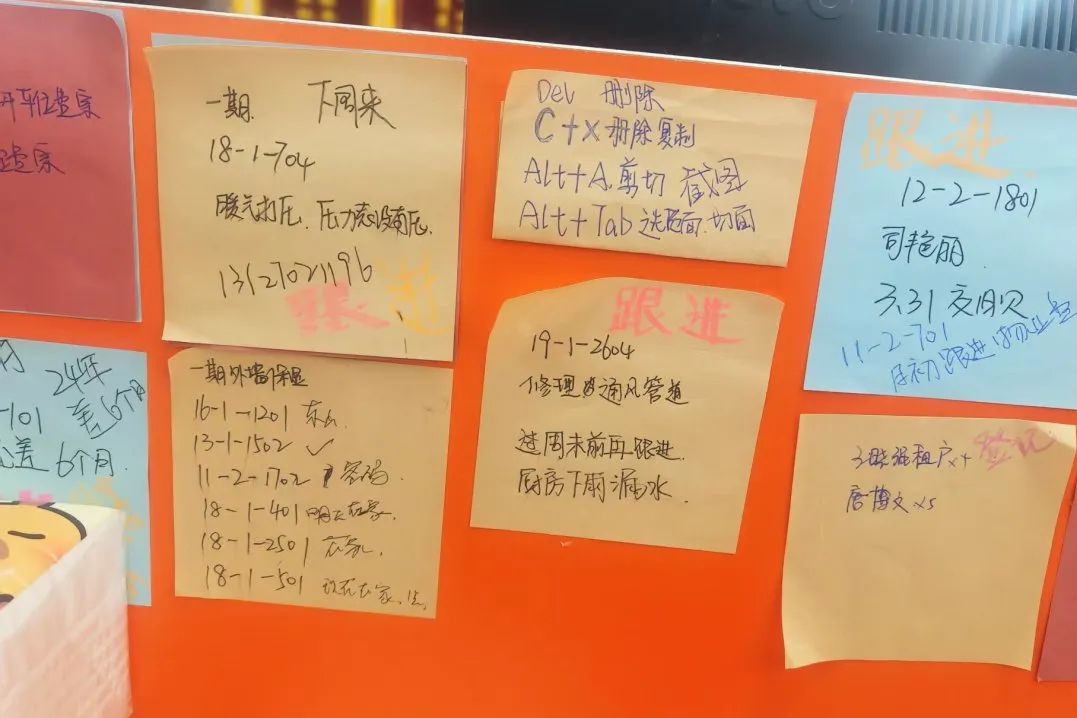 一期. 下周来
18-1-704
暖气打压. 压力表没有压.
13127021196
跟进
Del 删除
C+X 删除复制
Alt+A 剪切 截图
Alt+Tab 选页面.切面
跟进
12-2-1801
司艳丽.
3.31 交
11-2-701
月初跟进
24年
差6个月
-101
差 6个月.
一期外墙保温
16-1-1201
13-1-1502 ✓
11-2-1702
18-1-401 明天在家.
18-1-2501 在家.
18-1-501 现在在家
跟进
19-1-2604
修理 通风管道
这周末前再跟进.
厨房下雨漏水.
登记
租户x4
唐博文 x5